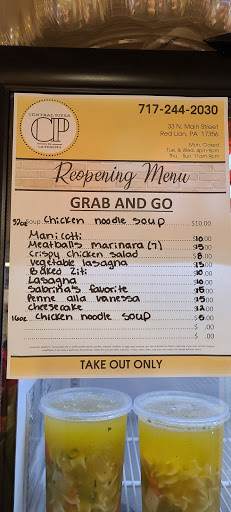 CENTRAL PIZZA
CP
CATERING
717-244-2030
33 N. Main Street
Red Lion, PA 17356
Mon. Closed
Tue. & Wed. 4pm-9pm
Thu. - Sun. 11am-9pm
Reopening Menu
GRAB AND GO
32oz Soup Chicken noodle soup $10.00
Manicotti $10.00
Meatballs marinara (7) $15.00
Crispy Chicken salad $8.00
Vegetable lasagna $15.00
Baked Ziti $10.00
Lasagna $10.00
Sabrina's favorite $15.00
Penne alla vanessa $15.00
Cheesecake $12.00
16oz Chicken noodle soup $5.00
$ .00
$ .00
TAKE OUT ONLY